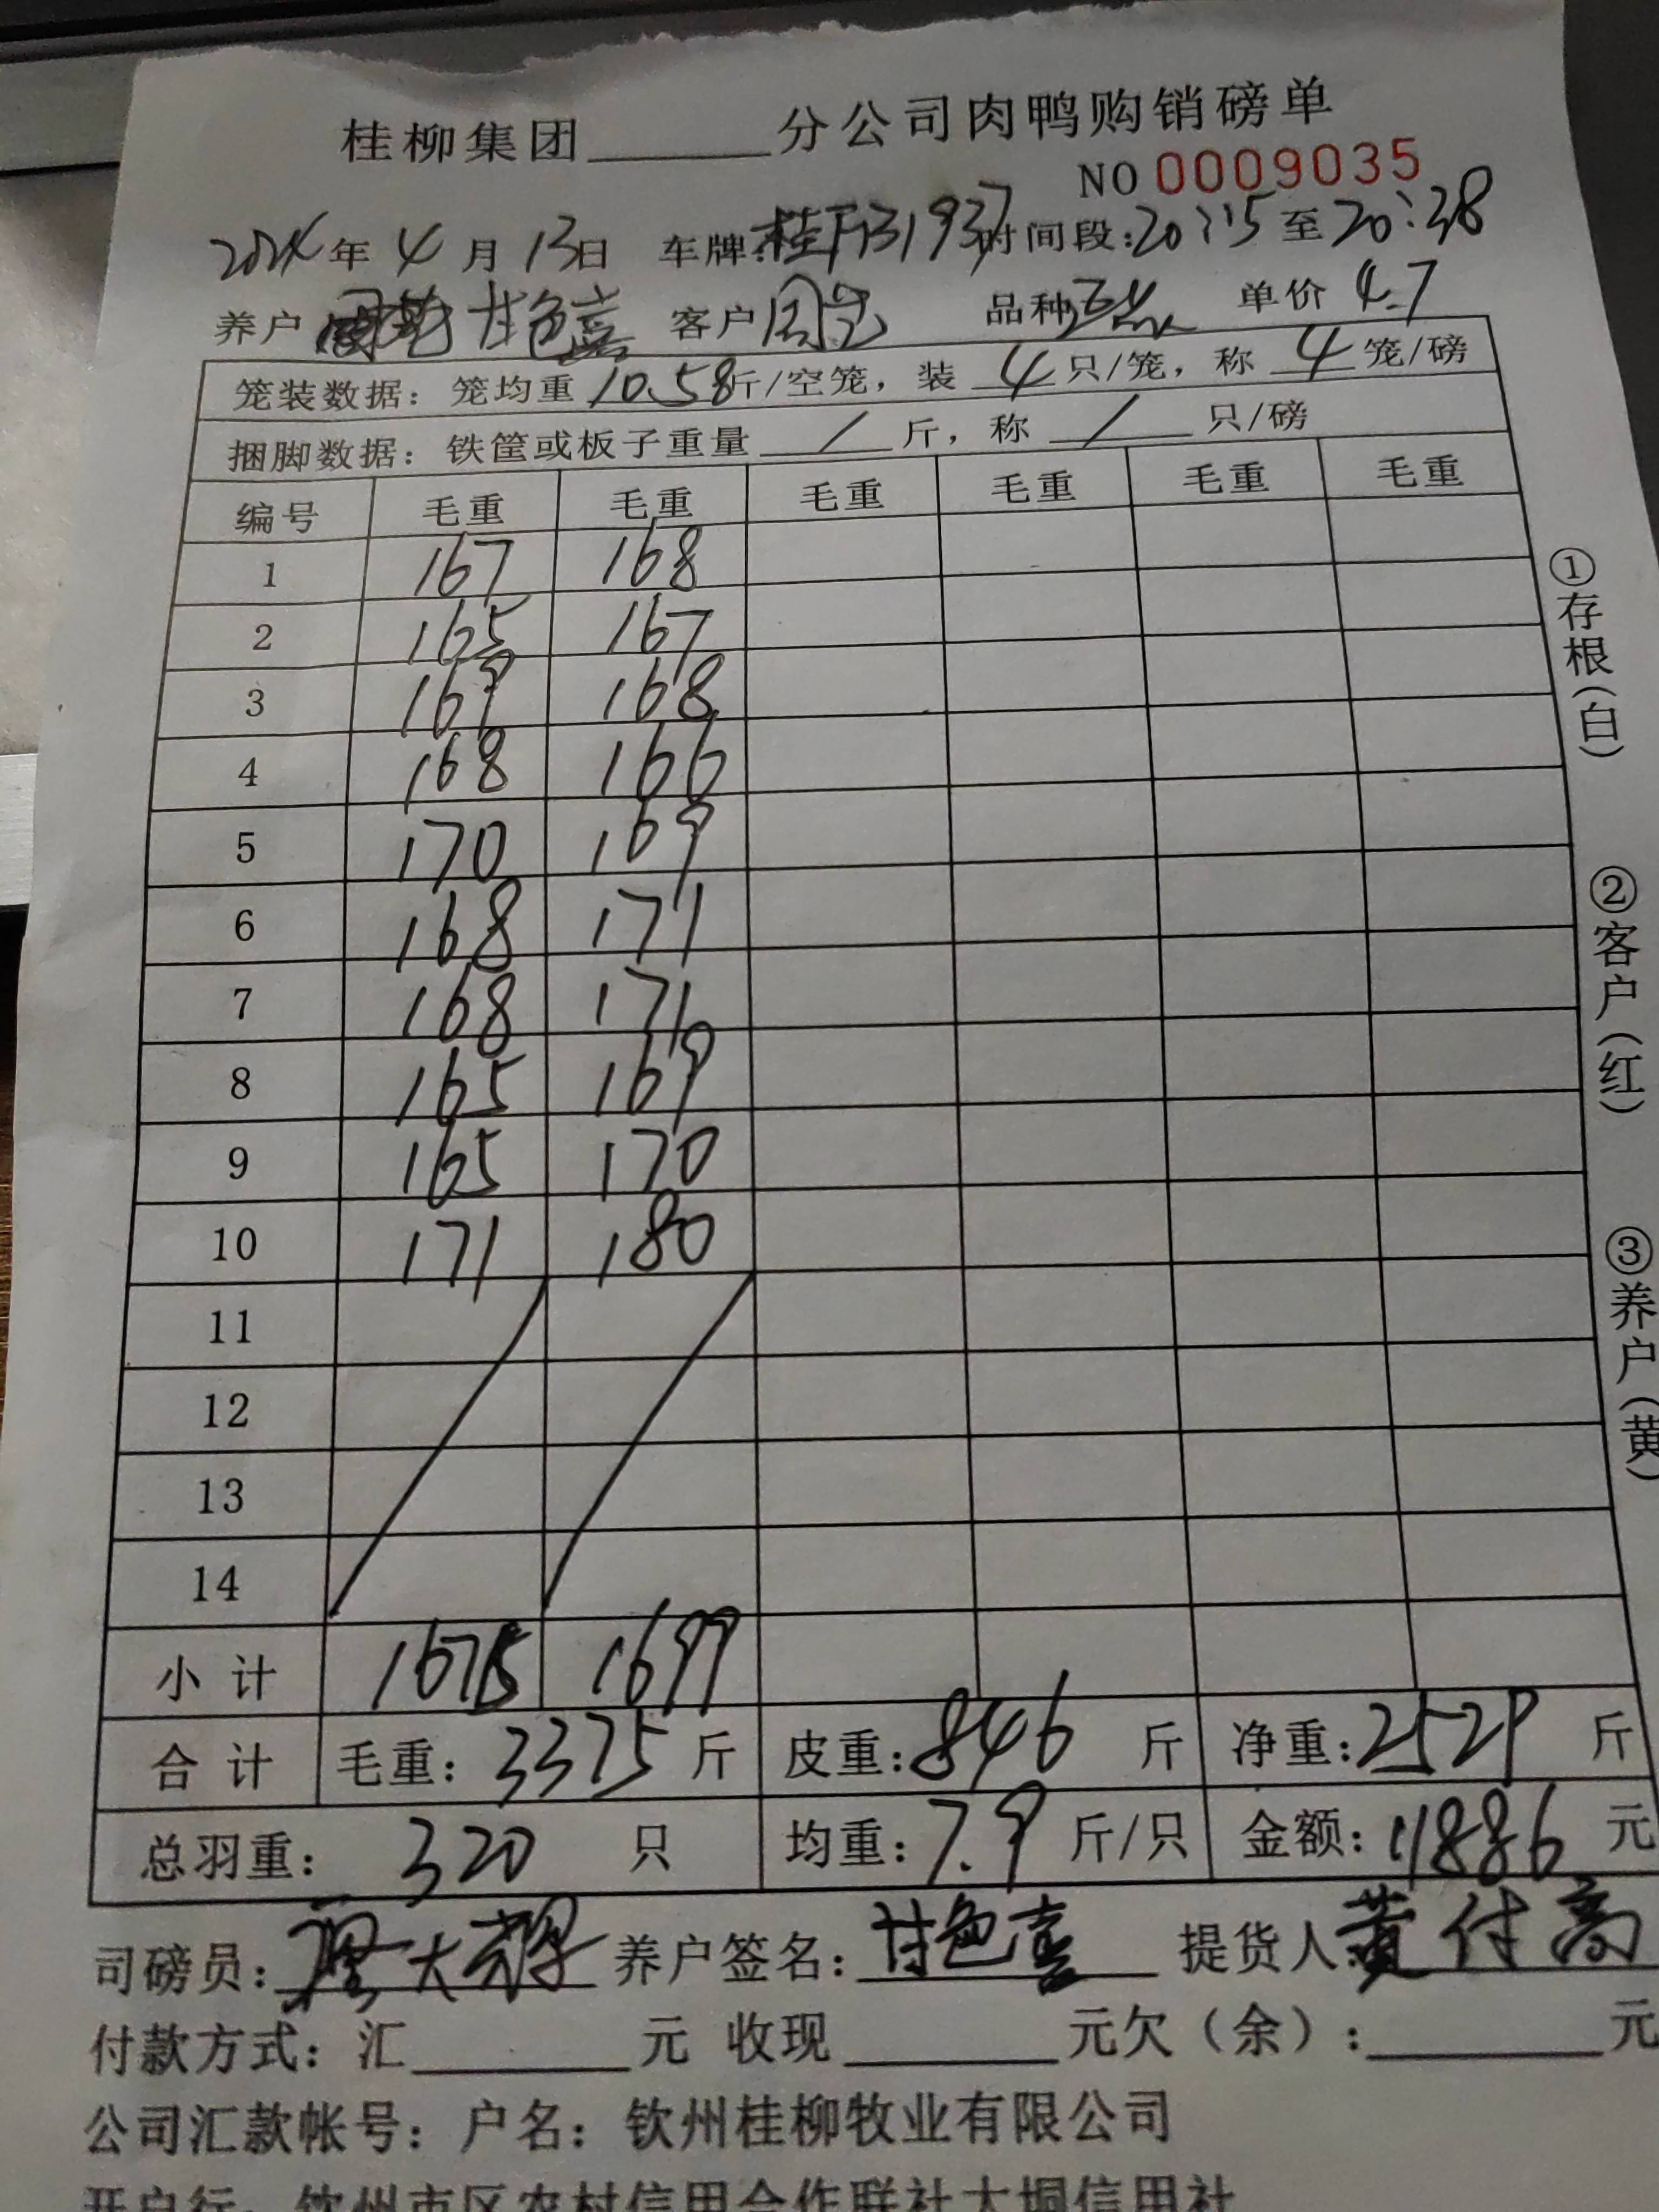 桂柳集团______分公司肉鸭购销磅单
NO 0009035
2024年 4 月 13日 车牌:桂 31937 时间段:20:15 至 20:38
养户 甘色喜 客户 周 品种 单价 4.7
笼装数据：笼均重 10.58斤/空笼，装 4 只/笼，称 4 笼/磅
捆脚数据：铁筐或板子重量 / 斤，称 / 只/磅
编号 毛重 毛重 毛重 毛重 毛重 毛重
1 167 168
2 165 167
3 169 168
4 168 166
5 170 169
6 168 171
7 168 171
8 165 169
9 165 170
10 171 180
11
12
13
14
小 计 1676 1699
合 计 毛重：3375 斤 皮重：846 斤 净重：2529 斤
总羽重： 320 只 均重：7.9 斤/只 金额：11886 元
司磅员： 大 养户签名：甘色喜 提货人 黄付高
付款方式：汇______元 收现______元欠（余）：______元
公司汇款帐号：户名：钦州桂柳牧业有限公司
开户行：钦州市区农村信用合作联社大垌信用社
①存根（白）
②客户（红）
③养户（黄）